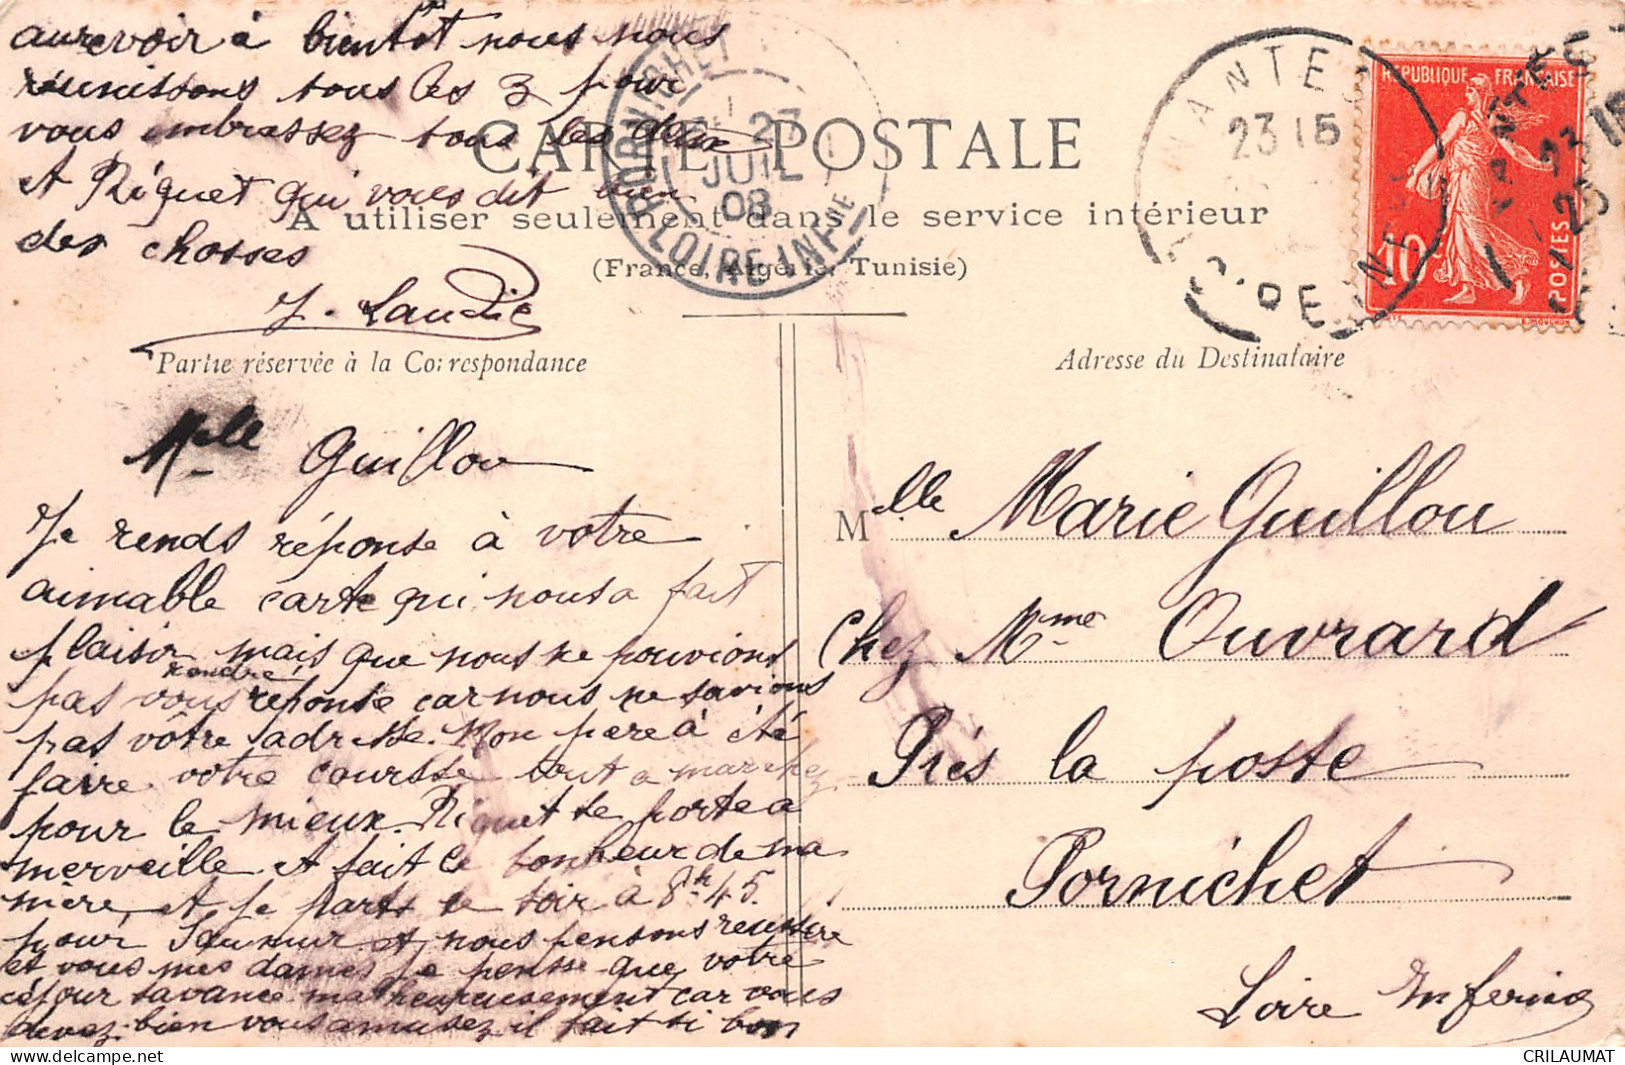 aurevoir à bientot nous nous
réunissons tous les 3 pour
vous embrassez tous les deux
et Riquet qui vous dit bien
des chosses
CARTE POSTALE
A utiliser seulement dans le service intérieur
(France, Algérie, Tunisie)
PORNICHET
27
JUIL
08
LOIRE-INF-RIE
NANTES
23 15
REPUBLIQUE FRANÇAISE
10
POSTES
Partie réservée à la Correspondance
Adresse du Destinataire
Mlle Guillou
Je rends réponse à votre
aimable carte qui nous a fait
plaisir mais que nous ne pouvions
pas vous rendre réponse car nous ne savions
pas vôtre adresse. Mon père à été
faire votre coursse tout a marchez
pour le mieux. Riquet se porte a
merveille et fait le bonheur de ma
mère, et je parts ce soir à 8h45.
pour Saumur et nous pensons reussire
et vous mes dames je pensse que votre
séjour savance malheureusement car vous
devez bien vous amusez il fait si bon
Mlle Marie Guillou
chez Mme Ouvrard
Près la poste
Pornichet
Loire Inferieure
CRILAUMAT